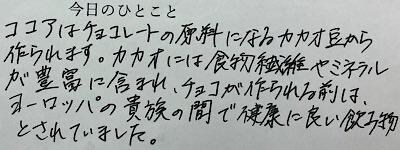 今日のひとこと
ココアはチョコレートの原料になるカカオ豆から
作られます。カカオには食物繊維やミネラル
が豊富に含まれ、チョコが作られる前は、
ヨーロッパの貴族の間で健康に良い飲み物
とされていました。